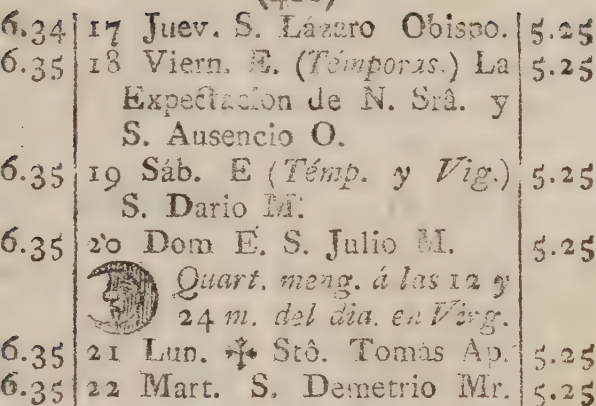 6.34 17 Juev. S. Lázaro Obispo. 5.25
6.35 18 Viern. E. (Témporas.) La 5.25
Expectacion de N. Srâ. y
S. Ausencio O.
6.35 19 Sáb. E (Témp. y Vig.) 5.25
S. Dario M.
6.35 20 Dom E. S. Julio M. 5.25
Quart. meng. á las 12 y
24 m. del dia. en Virg.
6.35 21 Lun. ✠ Stô. Tomàs Ap. 5.25
6.35 22 Mart. S. Demetrio Mr. 5.25